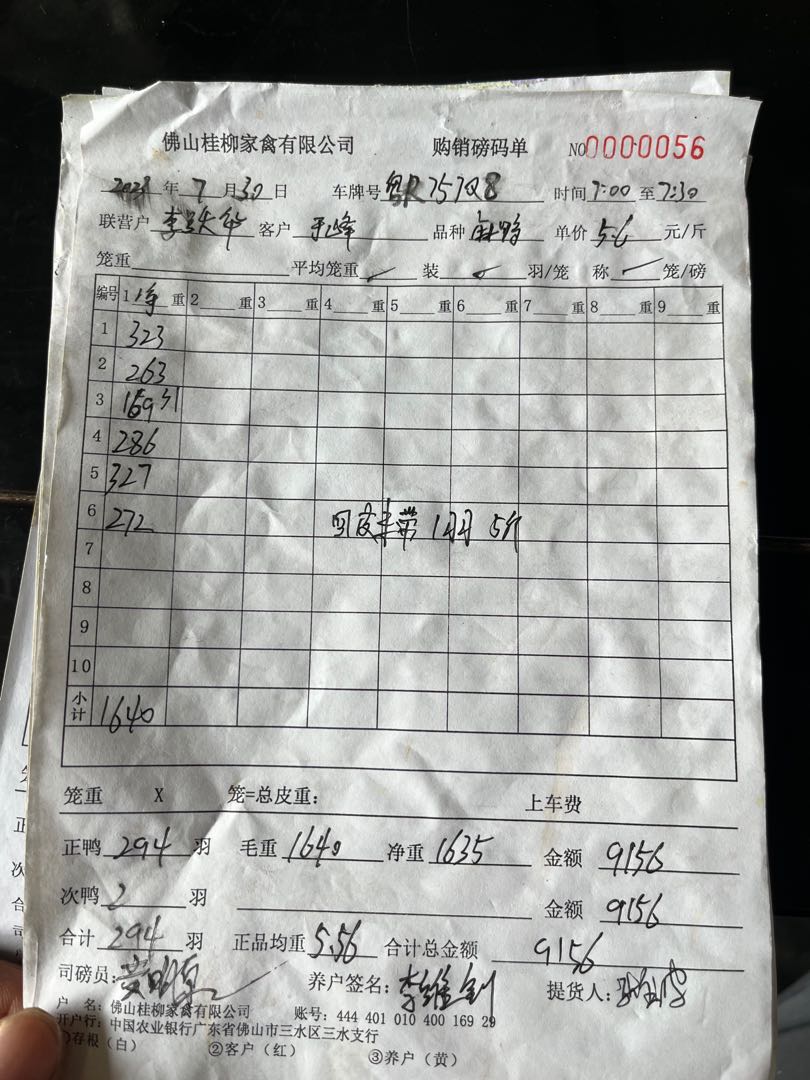 佛山桂柳家禽有限公司 购销磅码单 NO 0000056
年 7 月 30 日 车牌号 757Q8 时间 7:00 至 7:30
联营户 客户 品种 麻鸭 单价 5.6 元/斤
笼重 平均笼重 装 羽/笼 称 笼/磅
编号 1 净 重 2 重 3 重 4 重 5 重 6 重 7 重 8 重 9 重
1 323
2 263
3 169
4 286
5 327
6 272 回皮 带 5斤
7
8
9
10
小计 1640
笼重 X 笼=总皮重: 上车费
正鸭 294 羽 毛重 1640 净重 1635 金额 9156
次鸭 2 羽 金额 9156
合计 294 羽 正品均重 5.56 合计总金额 9156
司磅员: 养户签名: 提货人:
户 名: 佛山桂柳家禽有限公司 账号: 444 401 010 400 169 29
开户行: 中国农业银行广东省佛山市三水区三水支行
存根(白) ②客户(红) ③养户(黄)